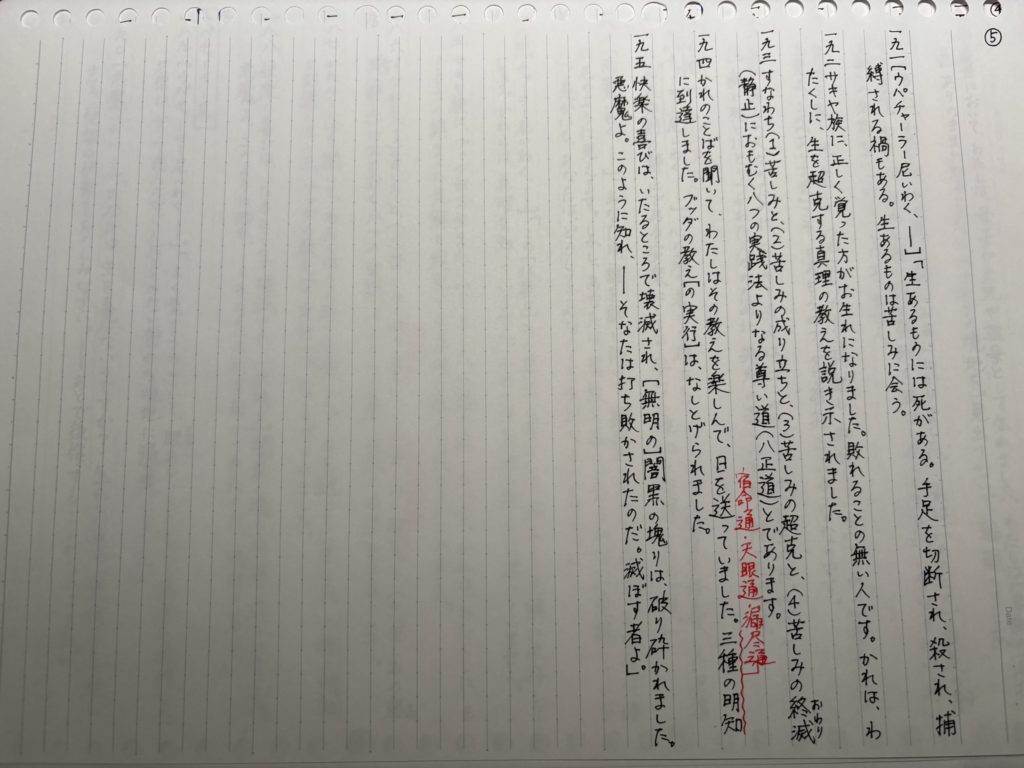 ④
⑤
一九一「ウペチャーラー尼いわく、──」「生あるものには死がある。手足を切断され、殺され、捕
縛される禍もある。生あるものは苦しみに会う。
一九二サキヤ族に、正しく覚った方がお生れになりました。敗れることの無い人です。かれは、わ
たくしに、生を超克する真理の教えを説き示されました。
一九三すなわち(1)苦しみと、(2)苦しみの成り立ちと、(3)苦しみの超克と、(4)苦しみの終滅
おわり
(静止)におもむく八つの実践法よりなる尊い道(八正道)とであります。
宿命通・天眼通・漏尽通
一九四かれのことばを聞いて、わたしはその教えを楽しんで、日を送っていました。三種の明知
に到達しました。ブッダの教え[の実行]は、なしとげられました。
一九五快楽の喜びは、いたるところで壊滅され、[無明の]闇黒の塊りは、破り砕かれました。
悪魔よ。このように知れ、──そなたは打ち敗かされたのだ。滅ぼす者よ」